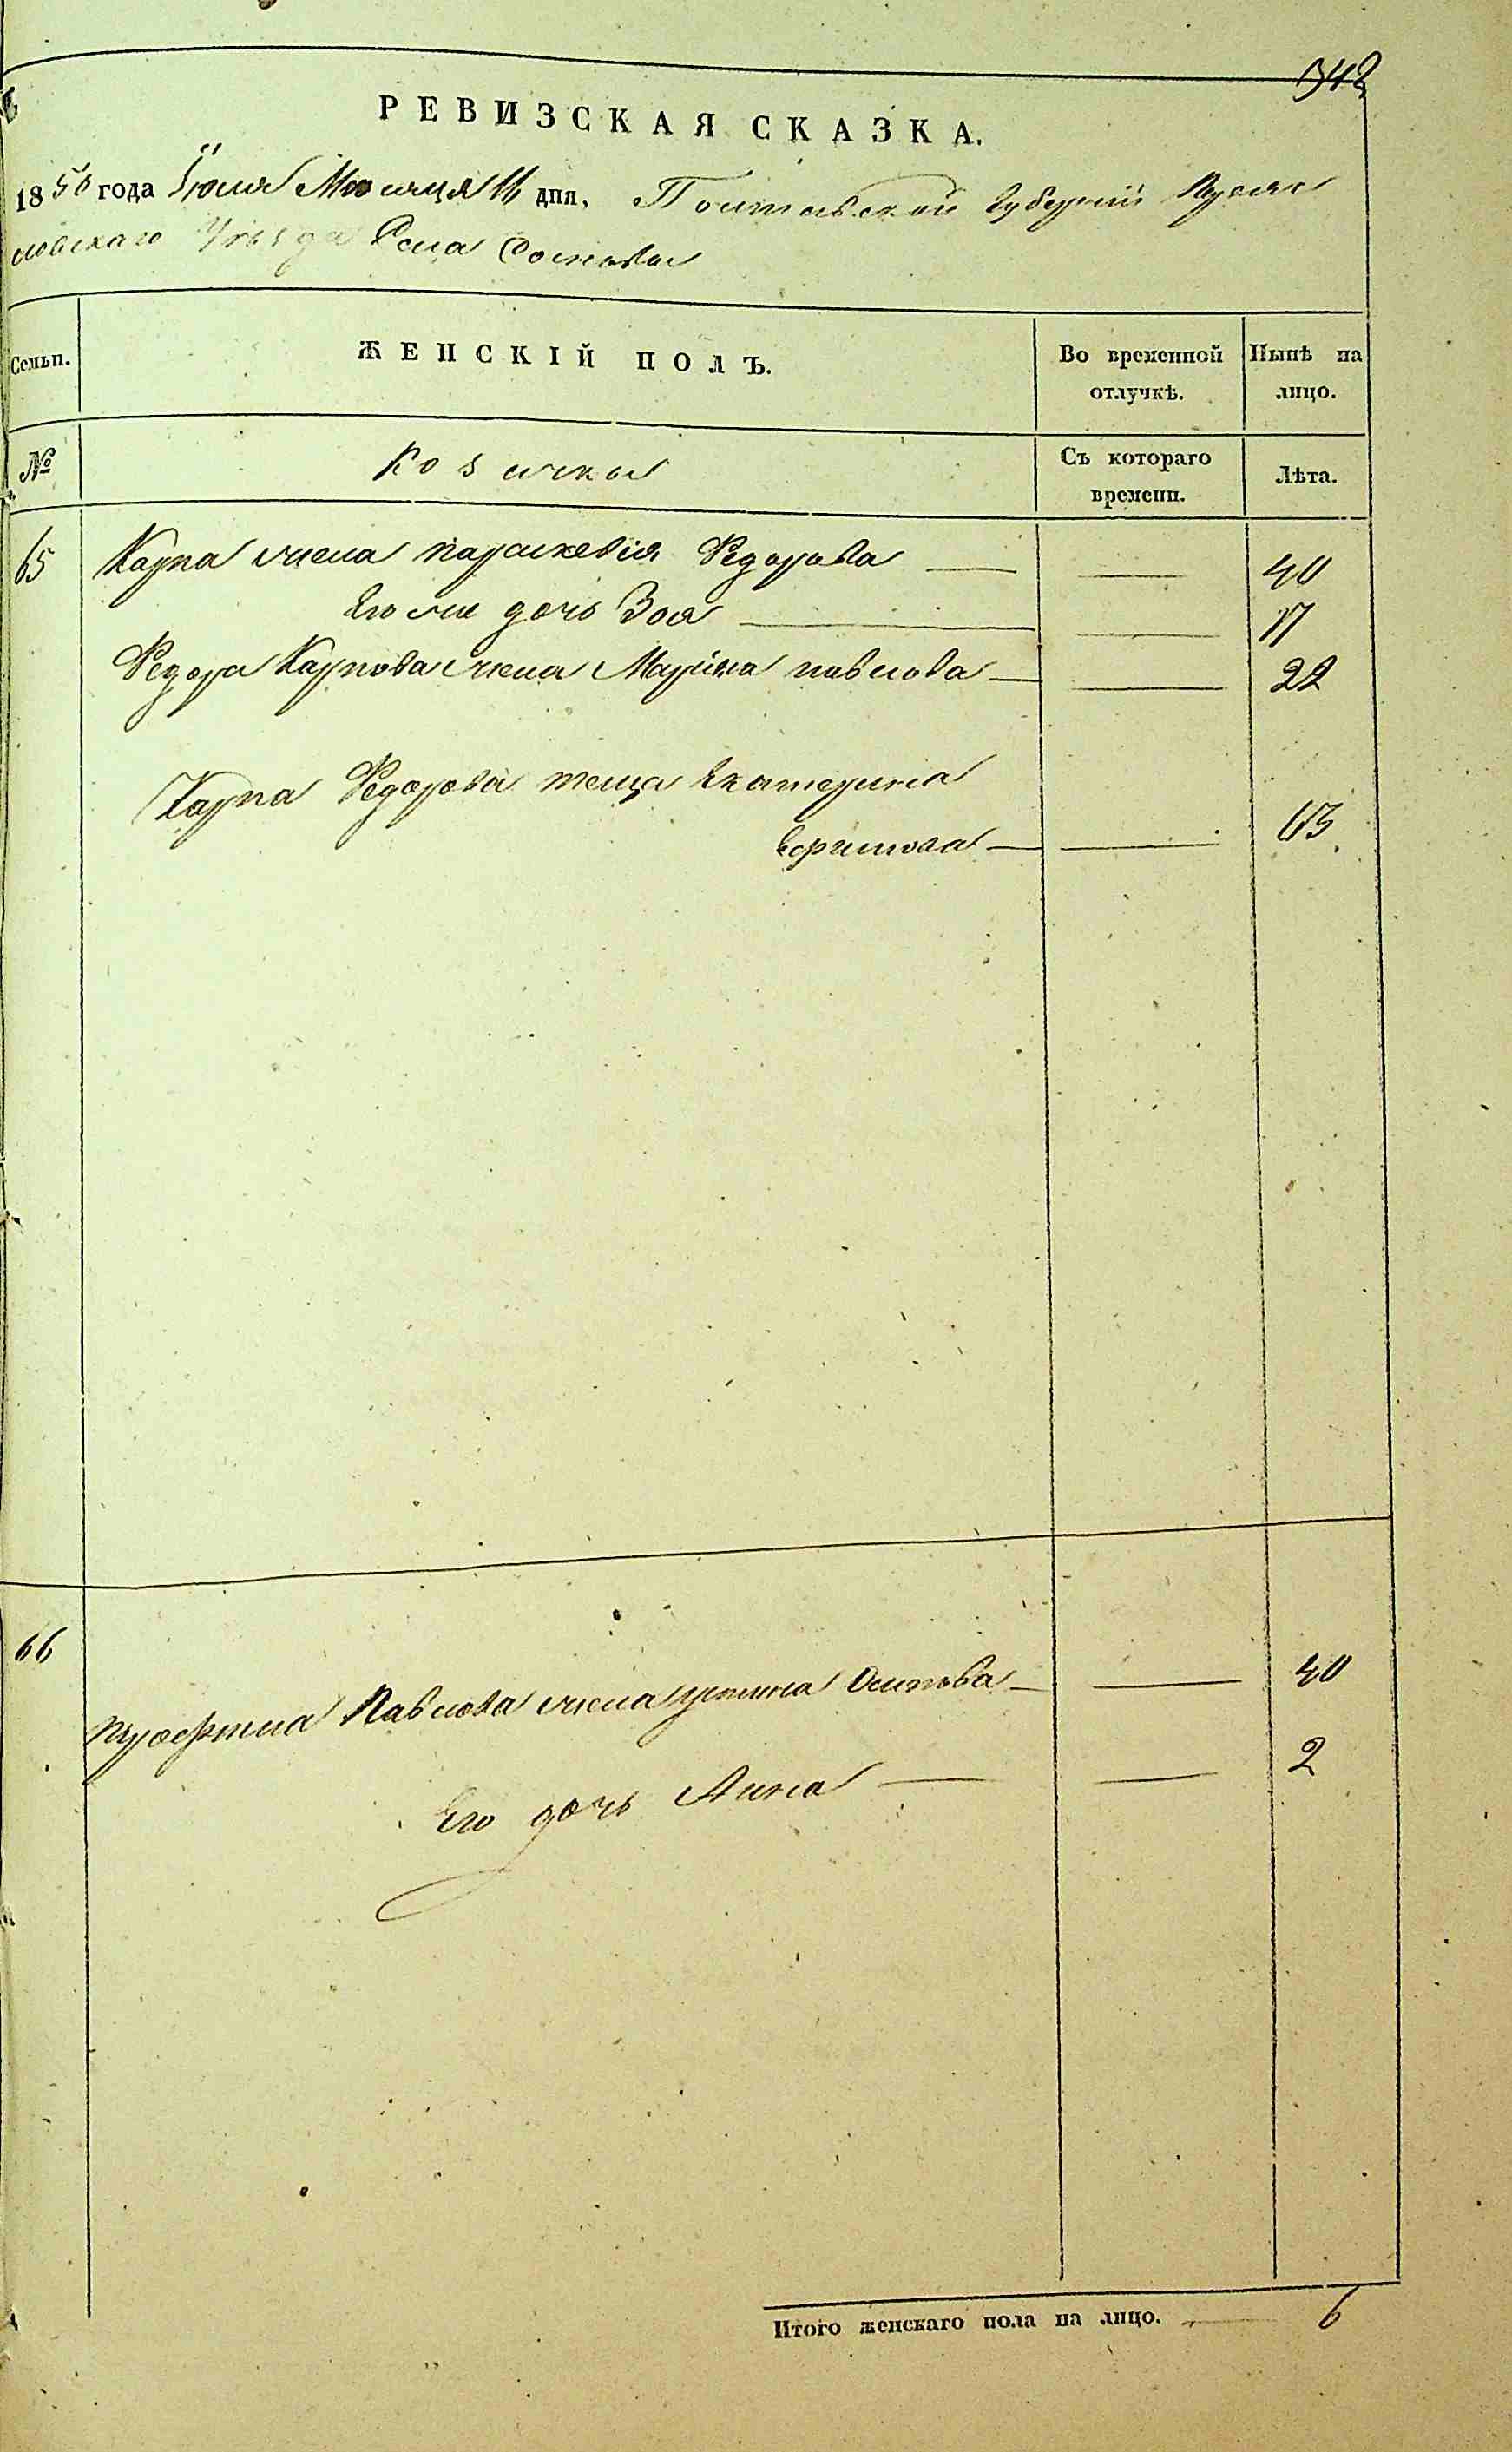 342
РЕВИЗСКАЯ СКАЗКА.
1850 года Іюля Месяца 16 дня, Полтавской Губерніи
Уезда Села
Семьи. ЖЕНСКІЙ ПОЛЪ. Во временной отлучкѣ. Нынѣ на лицо.
№ Козачки Съ котораго времени. Лѣта.
65 Карпа жена Параскевія Федорова — — 40
Его же дочь Зоя — — 17
Федора Карпова жена Марина Павлова — — 22
Карпа Федорова теща Екатерина
Ефимова — — 63
66 Павлова жена Осипова — — 40
Его дочь Анна — — 2
Итого женскаго пола на лицо. — 6